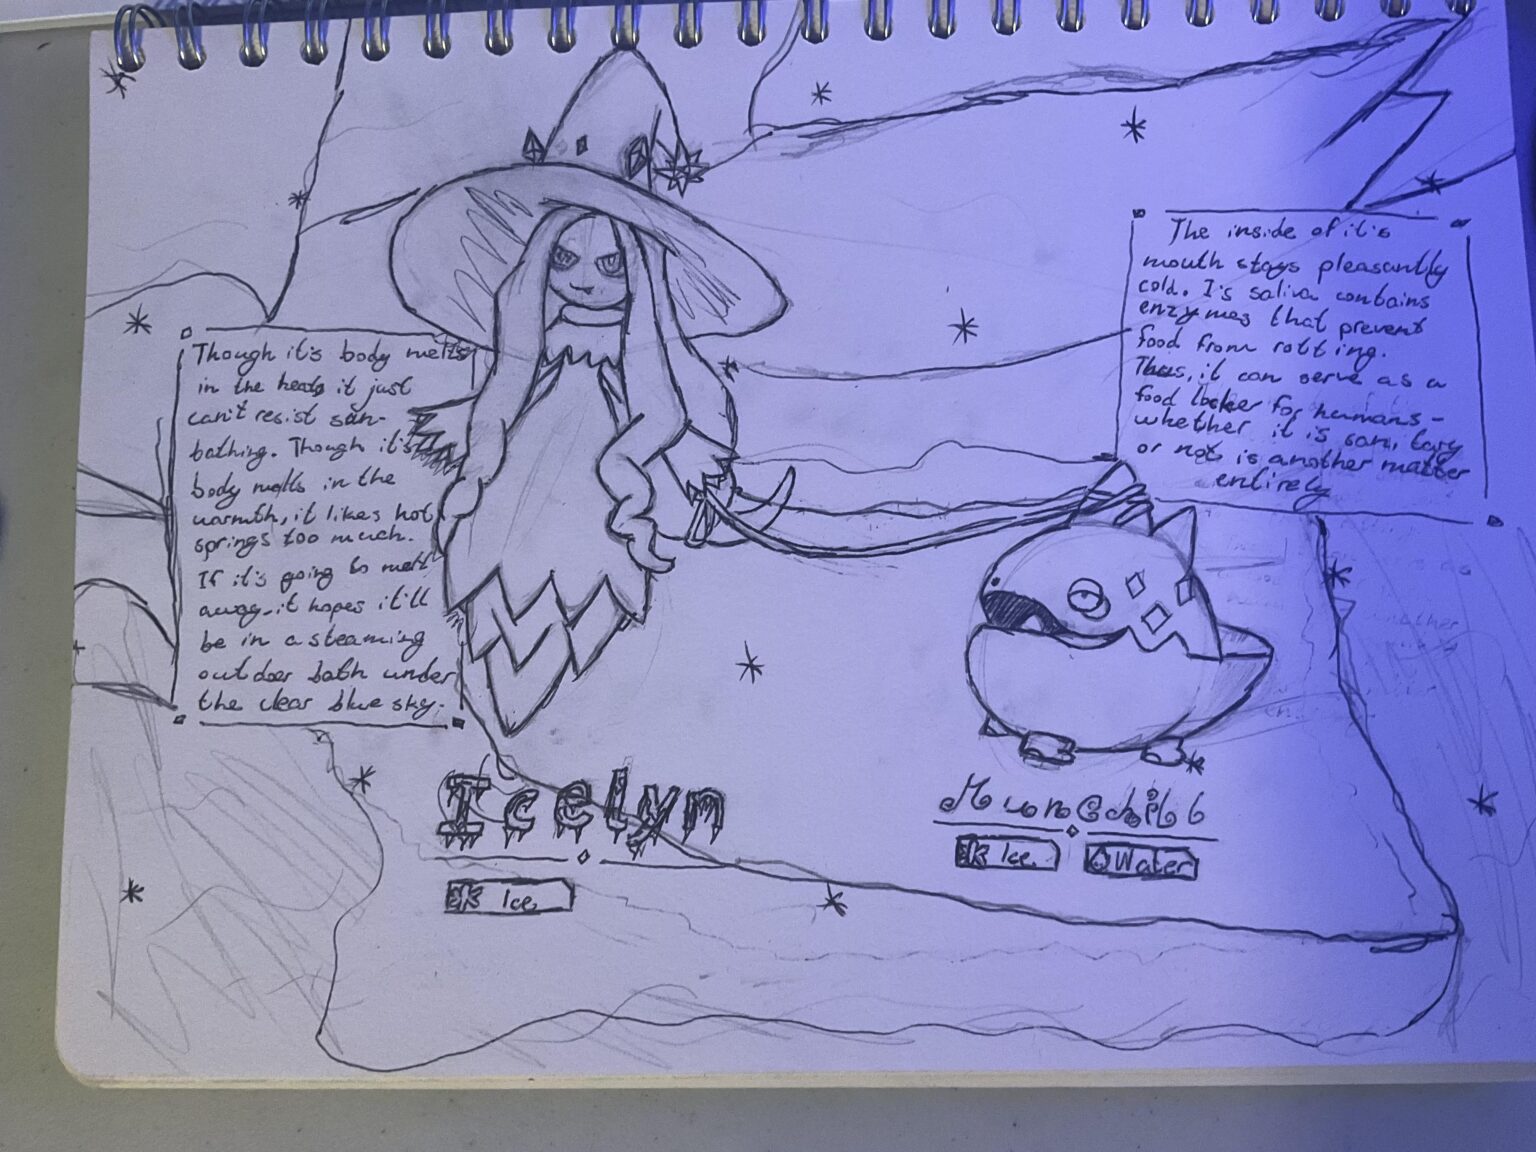 Though it's body melts
in the heat, it just
can't resist sun-
bathing. Though it's
body melts in the
warmth, it likes hot
springs too much.
If it's going to melt
away, it hopes it'll
be in a steaming
outdoor bath under
the clear blue sky.
Icelyn
Ice
The inside of it's
mouth stays pleasantly
cold. I's saliva contains
enzymes that prevent
food from rotting.
Thus, it can serve as a
food locker for humans -
whether it is sanitary
or not is another matter
entirely
Munchill
Ice
Water